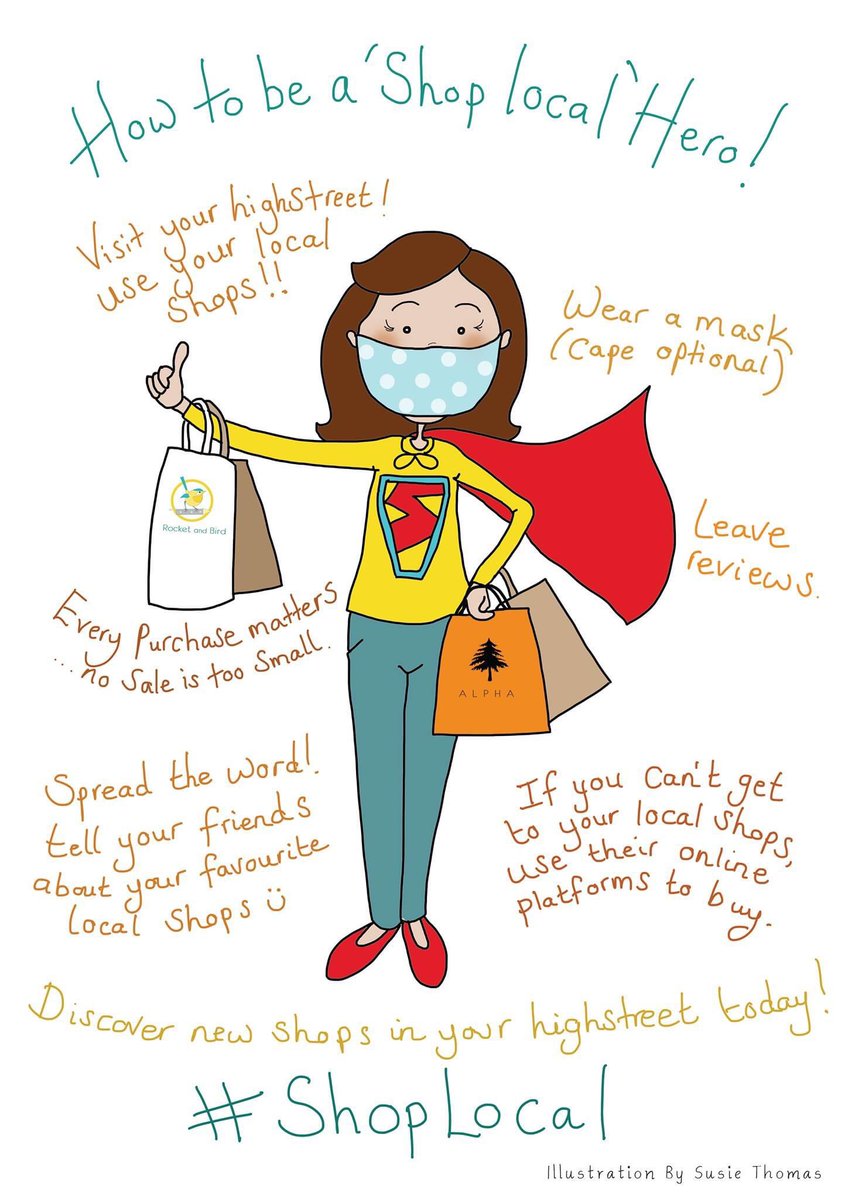 How to be a 'Shop local' Hero!
Visit your highstreet!
use your local
shops!!
Wear a mask
(Cape optional)
Rocket and Bird
Leave
reviews.
Every Purchase matters
...no Sale is too Small.
ALPHA
Spread the word!
tell your friends
about your favourite
local shops ü
If you Can't get
to your local shops,
use their online
platforms to buy.
Discover new shops in your highstreet today!
#ShopLocal
Illustration By Susie Thomas